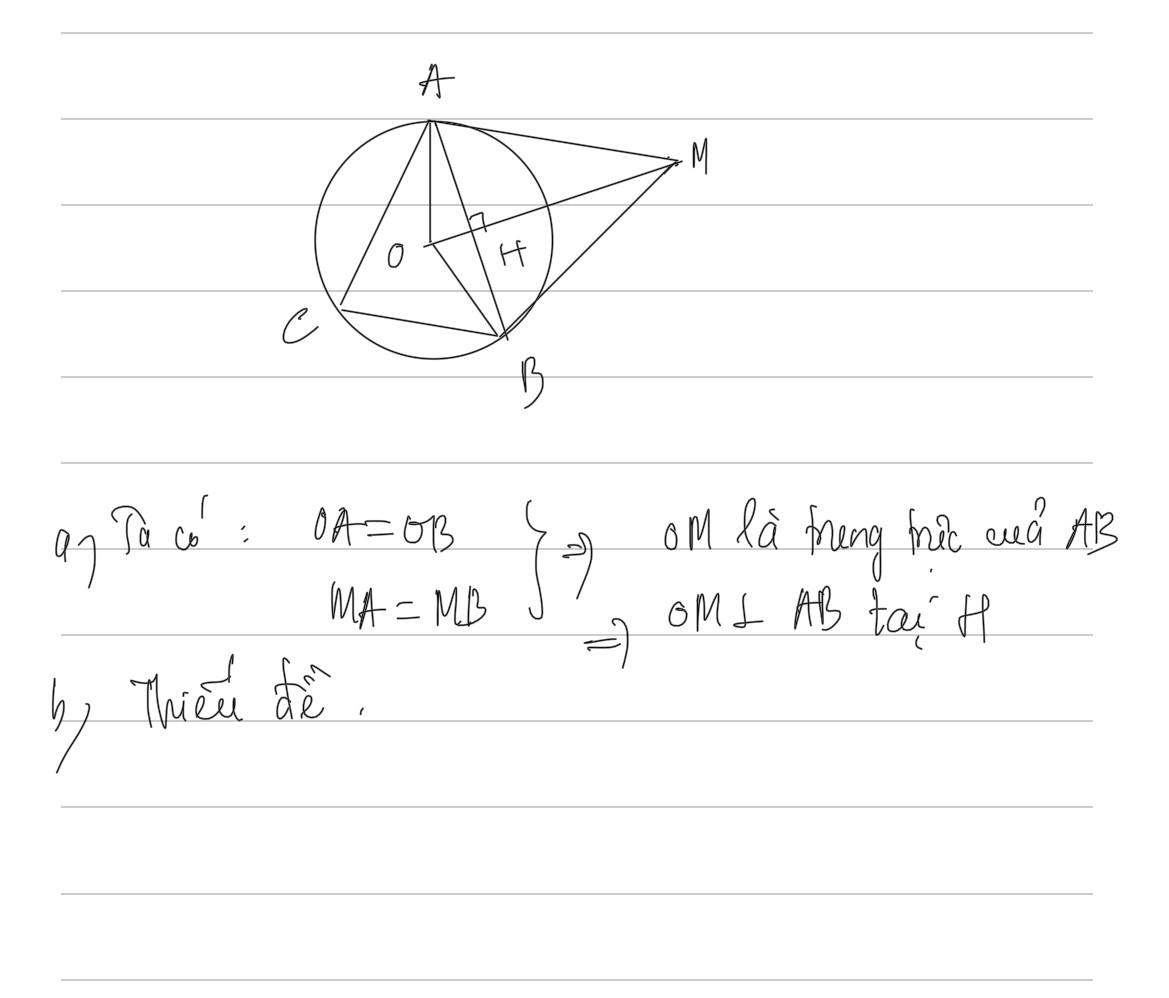 A
M
O
H
C
B
a) Ta có : OA = OB } => OM là trung trực của AB
MA = MB => OM ⊥ AB tại H
b) Thiếu đề .